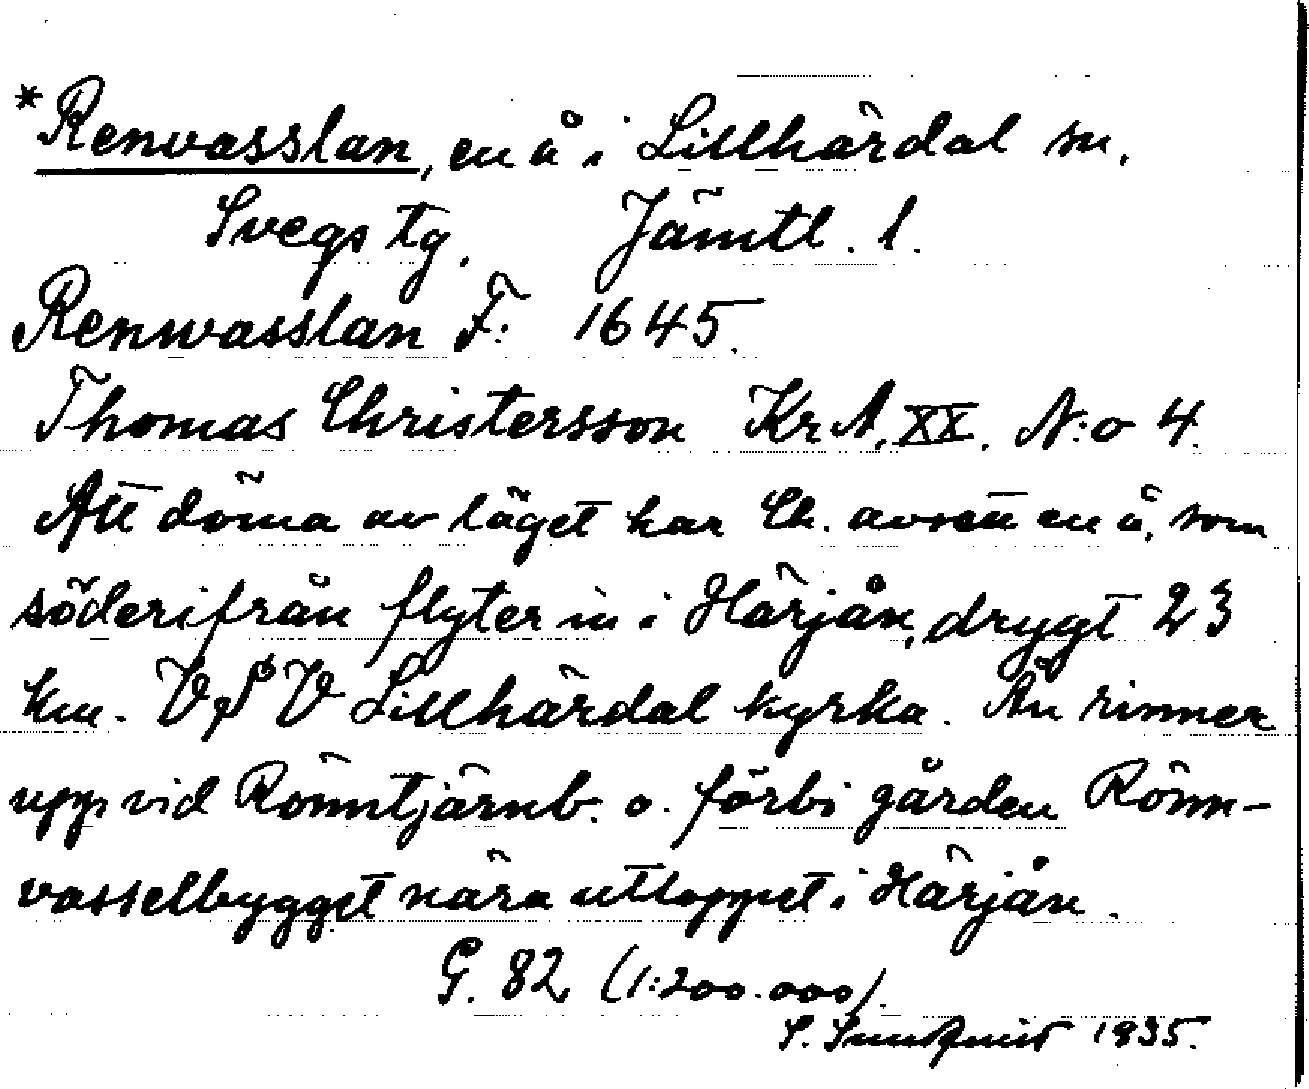 *Renvasslan, en å i Lillhärdal sn.
Svegs tg. Jämtl. l.
Renwasslan F: 1645.
Thomas Christersson Kr A. XX. N:o 4.
Att döma av läget har Ch. avsett en å, som
söderifrån flyter in i Härjån, drygt 23
km. V på V Lillhärdal kyrka. Ån rinner
upp vid Rönntjärnb. o. förbi gården Rönn-
vasselbygget nära utloppet i Härjån.
G. 82 (1:200.000).
S. Sundqvist 1935.